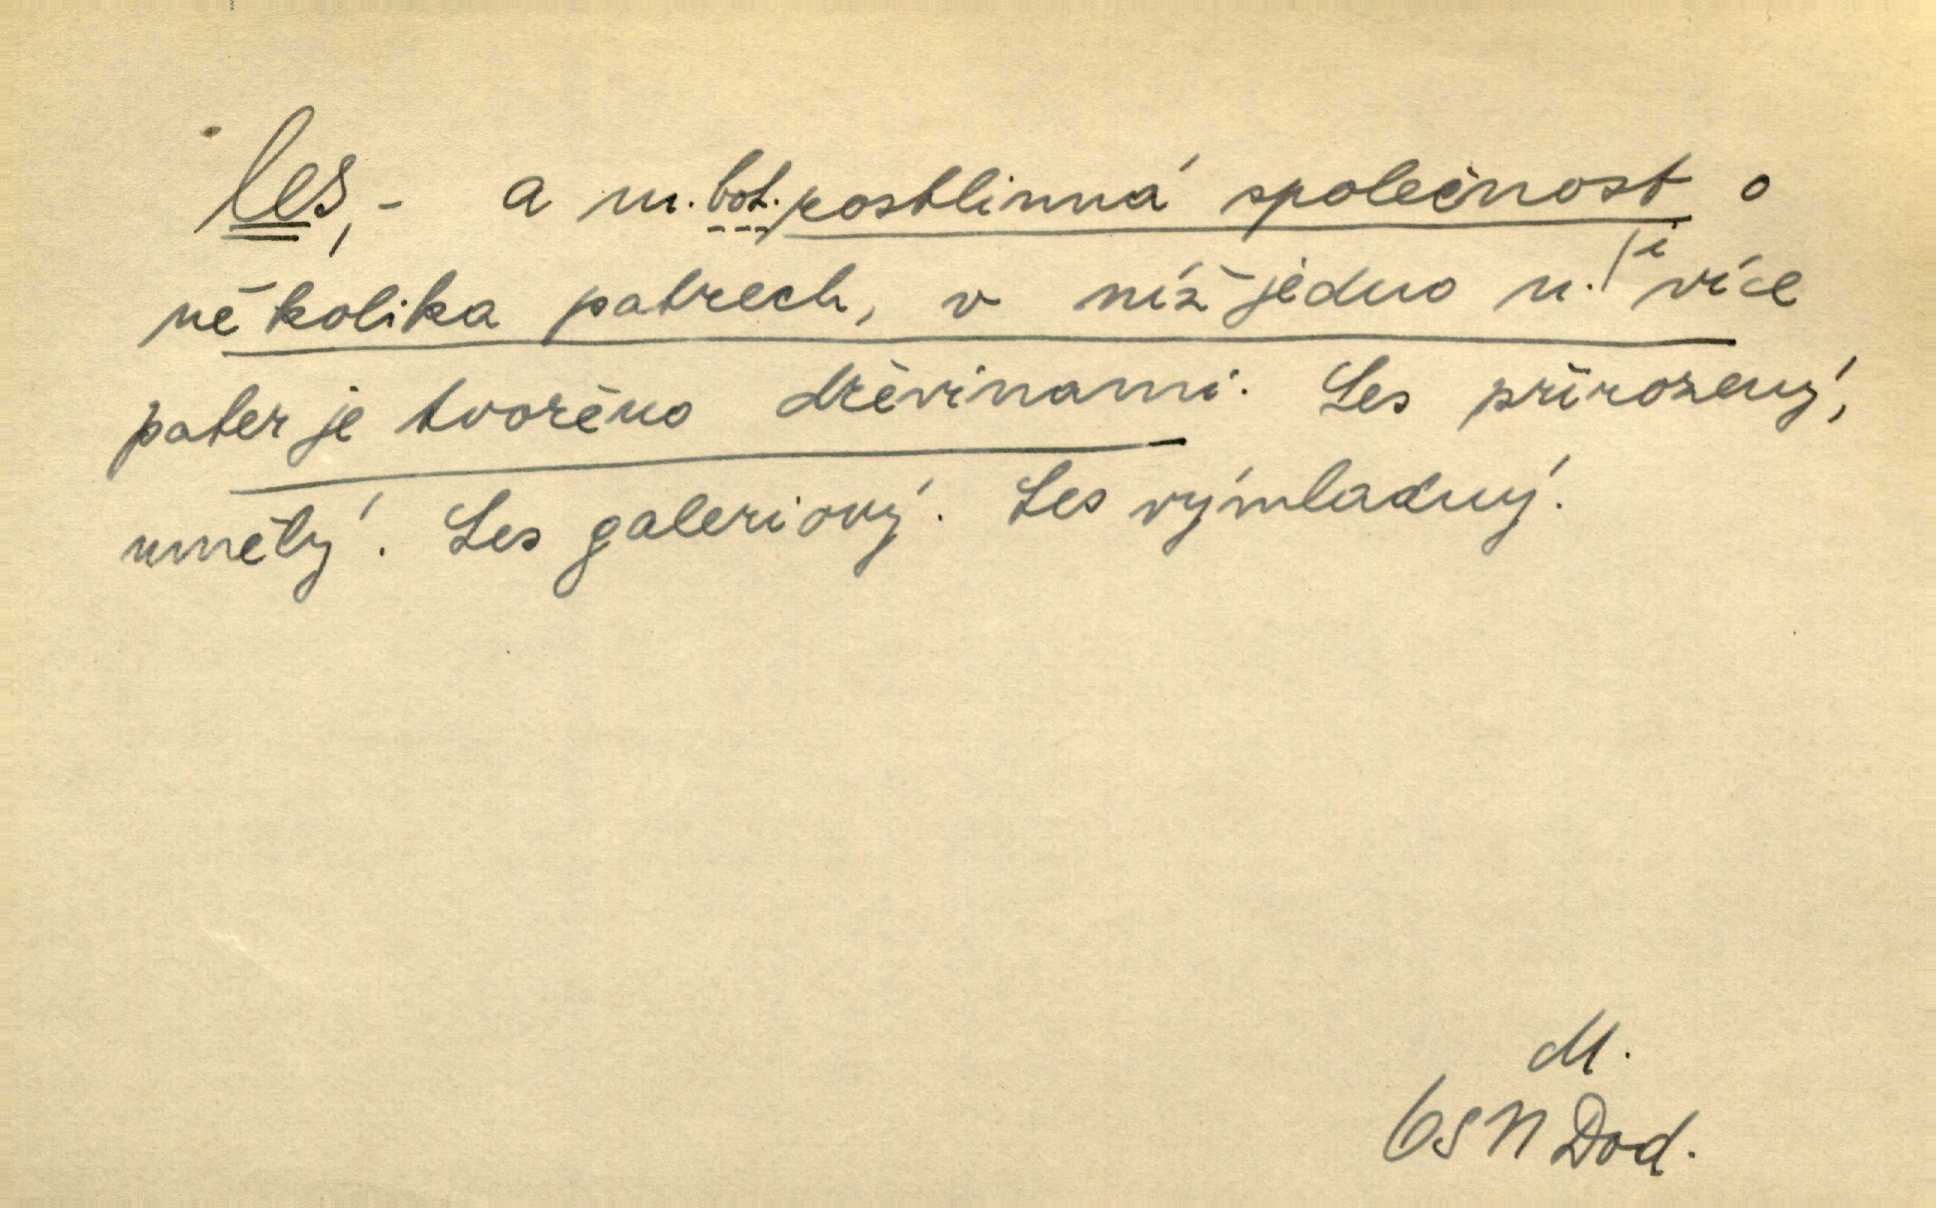 les, -a m. bot. rostlinná společnost o
několika patrech, v níž jedno n. i více
pater je tvořeno dřevinami. Les přirozený,
umělý. Les galeriový. Les výmladný.
M.
OSN Dod.